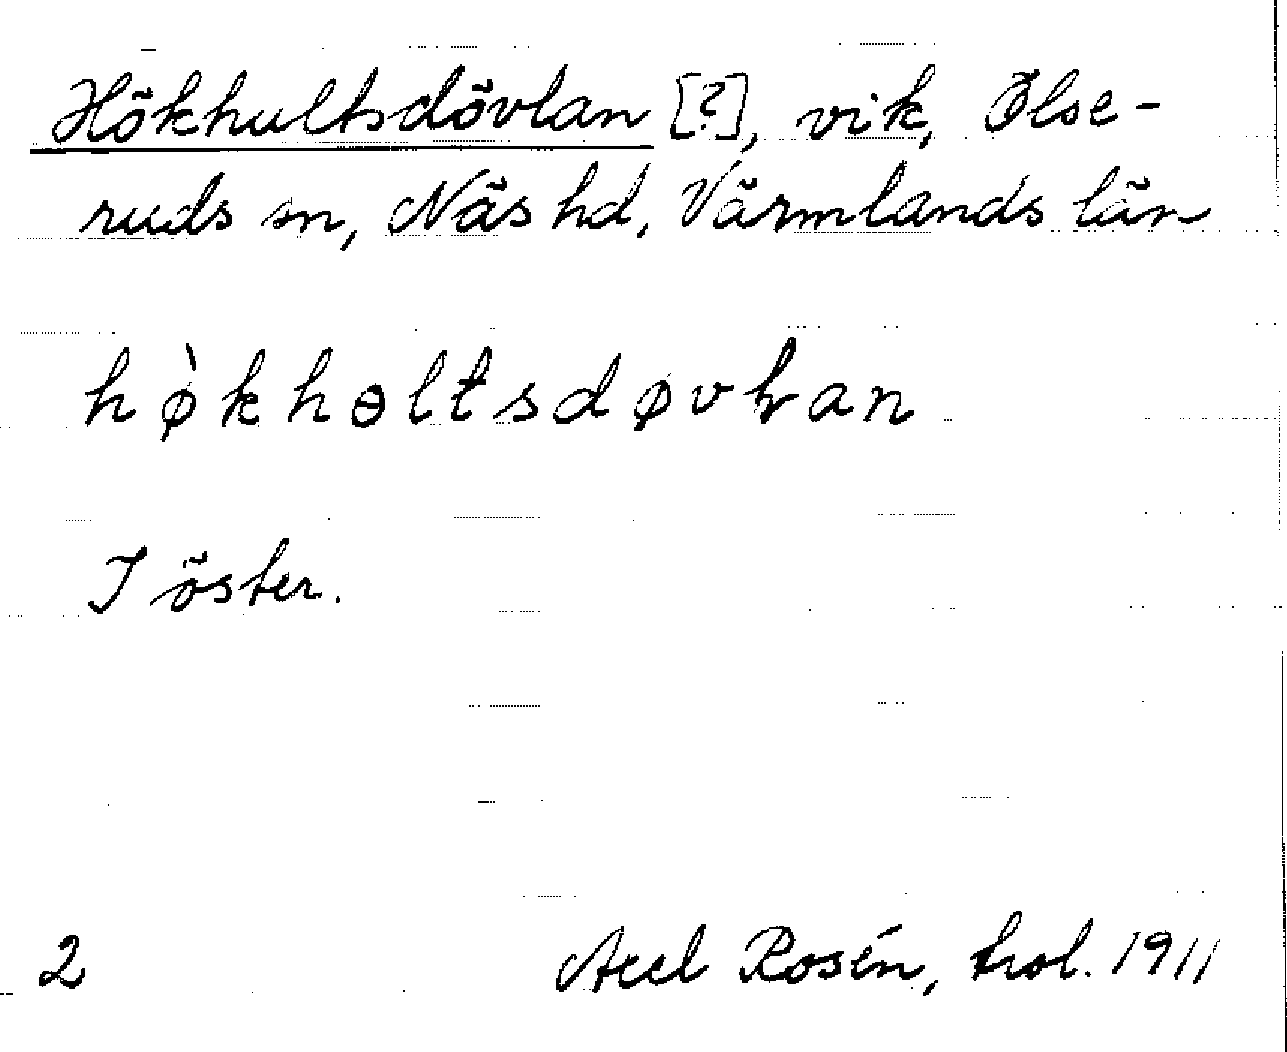 Hökhultsdövlan [?], vik, Ölse-
ruds sn, Näs hd, Värmlands län
hø̀khɵltsdøvɽan
I öster.
2 Axel Rosén, trol. 1911